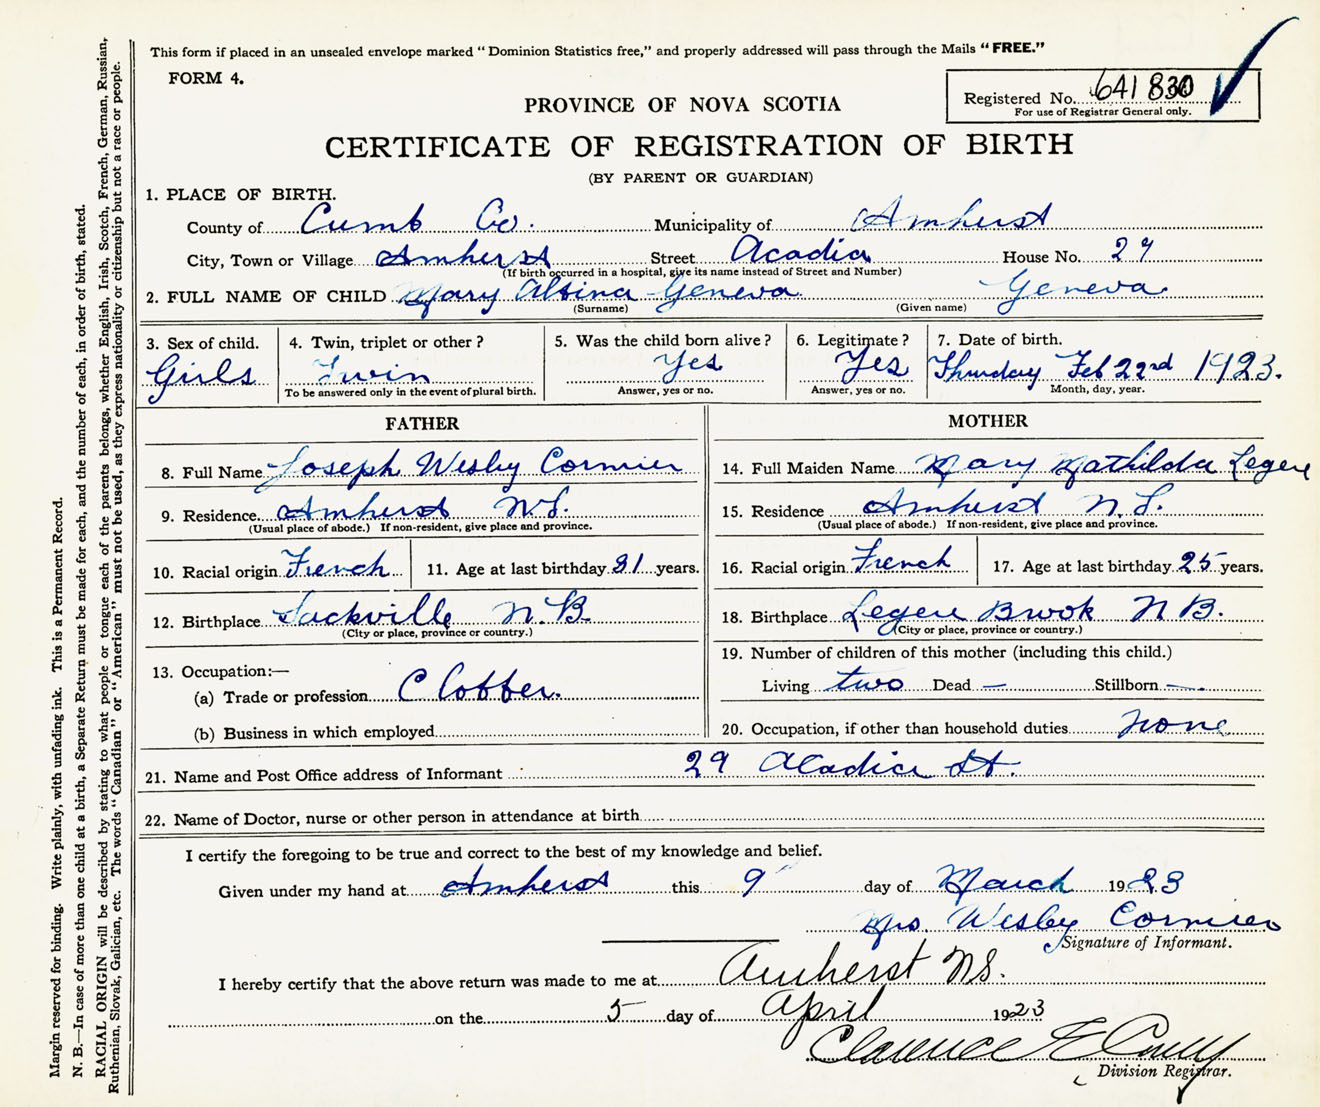 This form if placed in an unsealed envelope marked "Dominion Statistics free," and properly addressed will pass through the Mails "FREE."
FORM 4.
Registered No. 641830
For use of Registrar General only.
PROVINCE OF NOVA SCOTIA
CERTIFICATE OF REGISTRATION OF BIRTH
(BY PARENT OR GUARDIAN)
1. PLACE OF BIRTH.
County of Cumb Co. Municipality of Amherst
City, Town or Village Amherst Street Acadia House No. 29
(If birth occurred in a hospital, give its name instead of Street and Number)
2. FULL NAME OF CHILD Mary Geneva Geneva
(Surname) (Given name)
3. Sex of child. 4. Twin, triplet or other? 5. Was the child born alive? 6. Legitimate? 7. Date of birth.
Girls Twin Yes Yes Thursday Feb 22nd 1923.
To be answered only in the event of plural birth. Answer, yes or no. Answer, yes or no. Month, day, year.
FATHER MOTHER
8. Full Name Joseph Wesley Cormier 14. Full Maiden Name Mary Mathilda Legere
9. Residence Amherst N.S. 15. Residence Amherst N.S.
(Usual place of abode.) If non-resident, give place and province. (Usual place of abode.) If non-resident, give place and province.
10. Racial origin French 11. Age at last birthday 31 years. 16. Racial origin French 17. Age at last birthday 25 years.
12. Birthplace Sackville N.B. 18. Birthplace Legere Brook N B.
(City or place, province or country.) (City or place, province or country.)
13. Occupation:— 19. Number of children of this mother (including this child.)
(a) Trade or profession Clobber. Living two Dead — Stillborn —
(b) Business in which employed 20. Occupation, if other than household duties none
21. Name and Post Office address of Informant 29 Acadia St.
22. Name of Doctor, nurse or other person in attendance at birth
I certify the foregoing to be true and correct to the best of my knowledge and belief.
Given under my hand at Amherst this 9 day of March 1923
Mrs. Wesley Cormier
Signature of Informant.
I hereby certify that the above return was made to me at Amherst NS.
on the 5 day of April 1923
Clarence E
Division Registrar.
Margin reserved for binding. Write plainly, with unfading ink. This is a Permanent Record.
N. B.—In case of more than one child at a birth, a Separate Return must be made for each, and the number of each, in order of birth, stated.
RACIAL ORIGIN will be described by stating to what people or tongue each of the parents belongs, whether English, Irish, Scotch, French, German, Russian,
Ruthenian, Slovak, Galician, etc. The words "Canadian" or "American" must not be used, as they express nationality or citizenship but not a race or people.